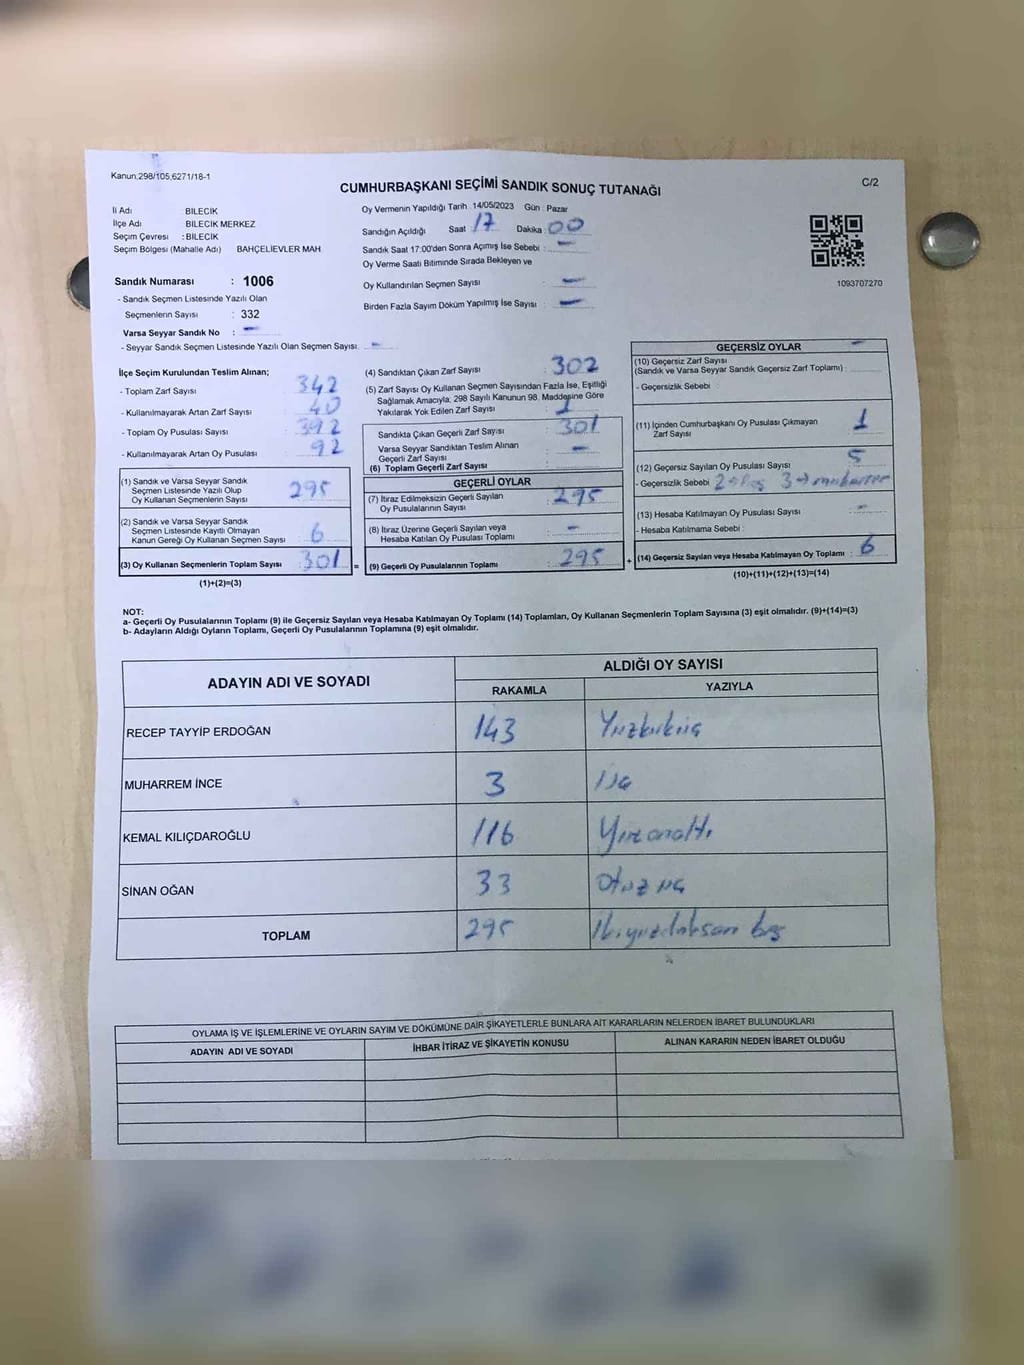 Kanun.298/105,6271/18-1
CUMHURBAŞKANI SEÇİMİ SANDIK SONUÇ TUTANAĞI
C/2
İl Adı : BİLECİK
İlçe Adı : BİLECİK MERKEZ
Seçim Çevresi : BİLECİK
Seçim Bölgesi (Mahalle Adı) BAHÇELİEVLER MAH
Sandık Numarası : 1006
- Sandık Seçmen Listesinde Yazılı Olan
Seçmenlerin Sayısı : 332
Varsa Seyyar Sandık No : -
- Seyyar Sandık Seçmen Listesinde Yazılı Olan Seçmen Sayısı: -
Oy Vermenin Yapıldığı Tarih : 14/05/2023 Gün : Pazar
Sandığın Açıldığı Saat : 17 Dakika : 00
Sandık Saat 17:00'den Sonra Açımış İse Sebebi : -
Oy Verme Saati Bitiminde Sırada Bekleyen ve
Oy Kullandırılan Seçmen Sayısı : -
Birden Fazla Sayım Döküm Yapılmış İse Sayısı : -
1093707270
İlçe Seçim Kurulundan Teslim Alınan;
- Toplam Zarf Sayısı : 342
- Kullanılmayarak Artan Zarf Sayısı : 40
- Toplam Oy Pusulası Sayısı : 392
- Kullanılmayarak Artan Oy Pusulası : 92
(1) Sandık ve Varsa Seyyar Sandık
Seçmen Listesinde Yazılı Olup
Oy Kullanan Seçmenlerin Sayısı : 295
(2) Sandık ve Varsa Seyyar Sandık
Seçmen Listesinde Kayıtlı Olmayan
Kanun Gereği Oy Kullanan Seçmen Sayısı : 6
(3) Oy Kullanan Seçmenlerin Toplam Sayısı : 301
(1)+(2)=(3)
(4) Sandıktan Çıkan Zarf Sayısı : 302
(5) Zarf Sayısı Oy Kullanan Seçmen Sayısından Fazla İse, Eşitliği
Sağlamak Amacıyla; 298 Sayılı Kanunun 98. Maddesine Göre
Yakılarak Yok Edilen Zarf Sayısı : 1
Sandıkta Çıkan Geçerli Zarf Sayısı : 301
Varsa Seyyar Sandıktan Teslim Alınan
Geçerli Zarf Sayısı : -
(6) Toplam Geçerli Zarf Sayısı :
GEÇERLİ OYLAR
(7) İtiraz Edilmeksizin Geçerli Sayılan
Oy Pusulalarının Sayısı : 295
(8) İtiraz Üzerine Geçerli Sayılan veya
Hesaba Katılan Oy Pusulası Toplamı : -
= (9) Geçerli Oy Pusulalarının Toplamı : 295
GEÇERSİZ OYLAR
(10) Geçersiz Zarf Sayısı
(Sandık ve Varsa Seyyar Sandık Geçersiz Zarf Toplamı) : -
- Geçersizlik Sebebi :
(11) İçinden Cumhurbaşkanı Oy Pusulası Çıkmayan
Zarf Sayısı : 1
(12) Geçersiz Sayılan Oy Pusulası Sayısı : 5
- Geçersizlik Sebebi : 2→Boş 3→
(13) Hesaba Katılmayan Oy Pusulası Sayısı : -
- Hesaba Katılmama Sebebi :
+ (14) Geçersiz Sayılan veya Hesaba Katılmayan Oy Toplamı : 6
(10)+(11)+(12)+(13)=(14)
NOT:
a- Geçerli Oy Pusulalarının Toplamı (9) ile Geçersiz Sayılan veya Hesaba Katılmayan Oy Toplamı (14) Toplamları, Oy Kullanan Seçmenlerin Toplam Sayısına (3) eşit olmalıdır. (9)+(14)=(3)
b- Adayların Aldığı Oyların Toplamı, Geçerli Oy Pusulalarının Toplamına (9) eşit olmalıdır.
ADAYIN ADI VE SOYADI
ALDIĞI OY SAYISI
RAKAMLA YAZIYLA
RECEP TAYYİP ERDOĞAN 143 Yüzkırküç
MUHARREM İNCE 3 Üç
KEMAL KILIÇDAROĞLU 116 Yüzonaltı
SİNAN OĞAN 33 Otuz üç
TOPLAM 295 İkiyüzdoksan beş
OYLAMA İŞ VE İŞLEMLERİNE VE OYLARIN SAYIM VE DÖKÜMÜNE DAİR ŞİKAYETLERLE BUNLARA AİT KARARLARIN NELERDEN İBARET BULUNDUKLARI
ADAYIN ADI VE SOYADI İHBAR İTİRAZ VE ŞİKAYETİN KONUSU ALINAN KARARIN NEDEN İBARET OLDUĞU